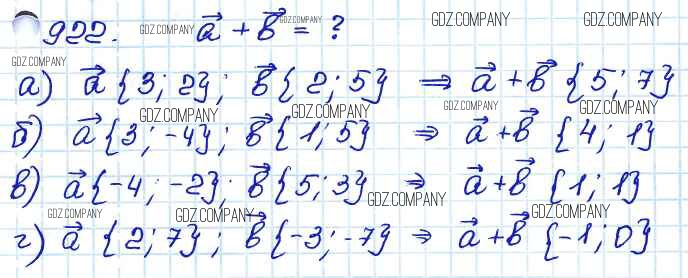 922. GDZ.COMPANY a⃗ + b⃗ = ? GDZ.COMPANY GDZ.COMPANY GDZ.COMPANY
GDZ.COMPANY
а) a⃗ {3; 2}; b⃗ {2; 5} ⇒ a⃗ + b⃗ {5; 7}
GDZ.COMPANY GDZ.COMPANY GDZ.COMPANY GDZ.COMPANY
б) a⃗ {3; -4}; b⃗ {1; 5} ⇒ a⃗ + b⃗ {4; 1}
в) a⃗ {-4; -2}; b⃗ {5; 3} ⇒ a⃗ + b⃗ {1; 1}
GDZ.COMPANY
GDZ.COMPANY GDZ.COMPANY GDZ.COMPANY
г) a⃗ {2; 7}; b⃗ {-3; -7} ⇒ a⃗ + b⃗ {-1; 0}